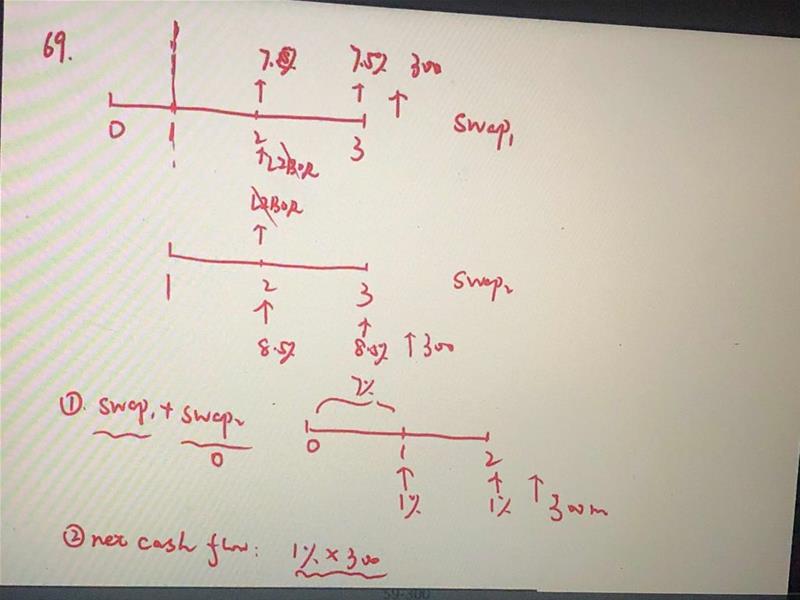 69.
7.5% 7.5% 300
0 1 2 3 swap₁
LIBOR
LIBOR
1 2 3 swap₂
8.5% 8.5% 300
7%
① swap₁ + swap₂
0
0 1 2
1% 1% 300m
② net cash flow: 1% × 300
59-300